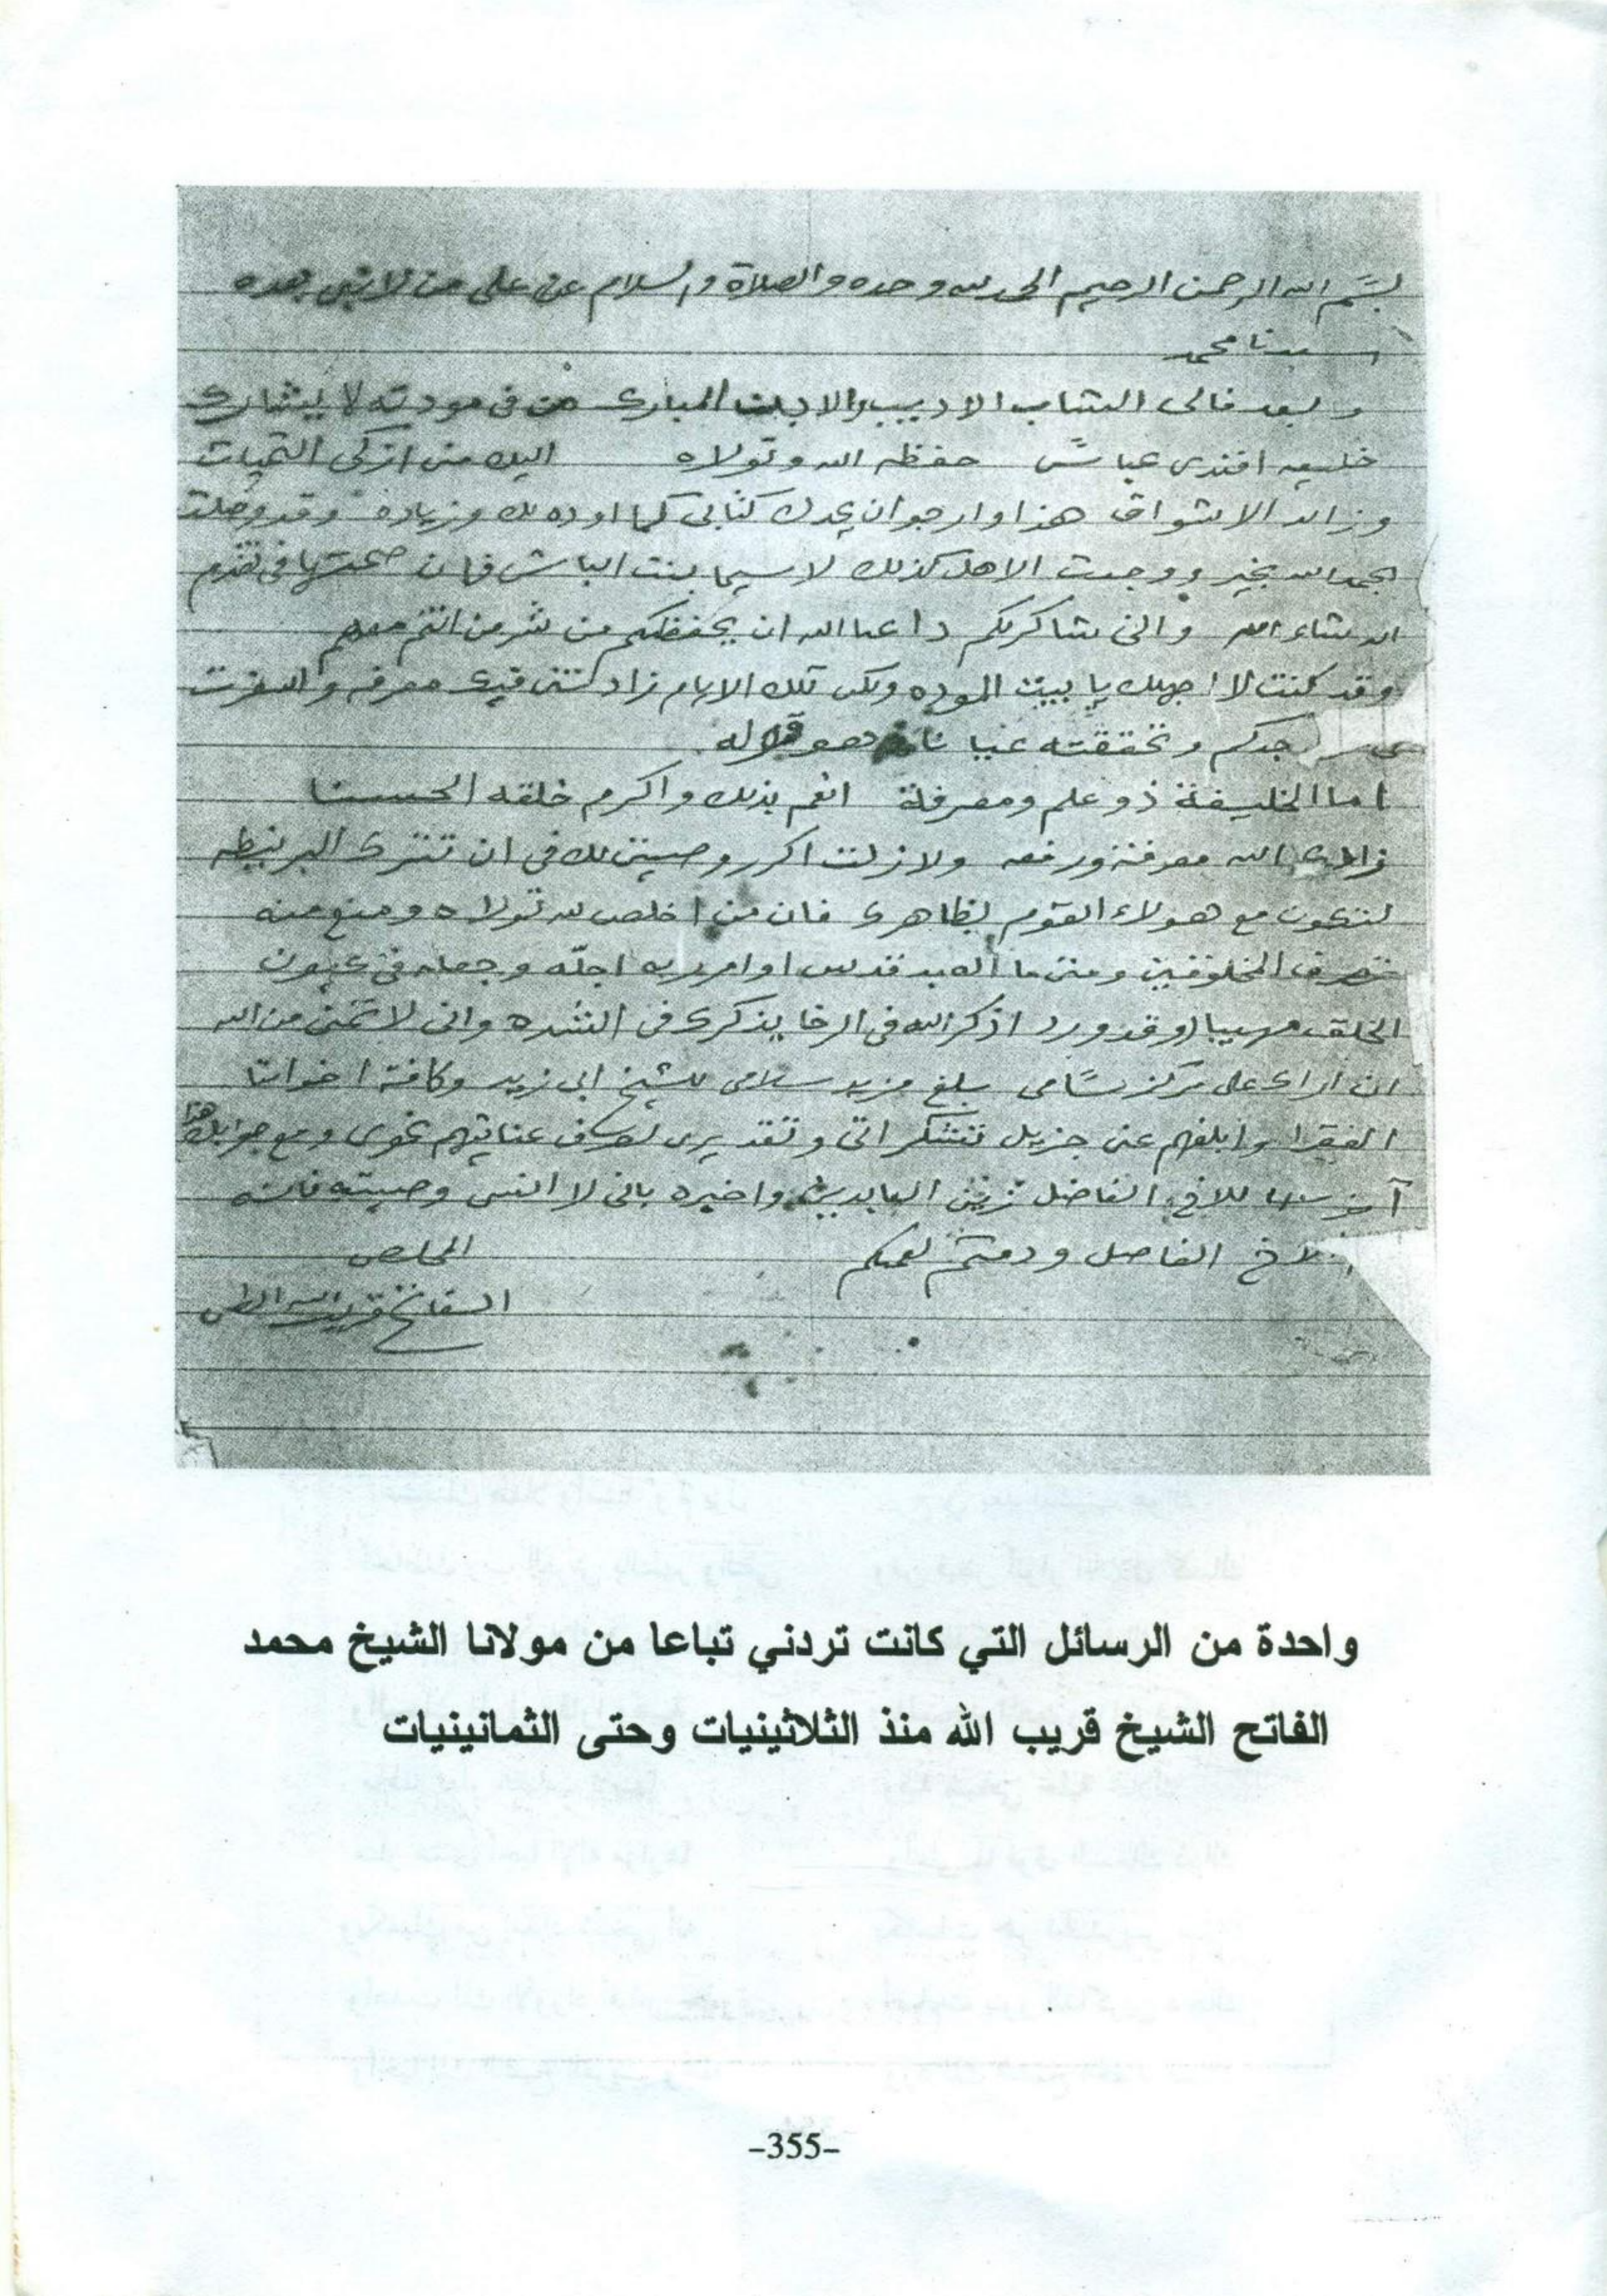 بسم الله الرحمن الرحيم الحمد لله وحده والصلاة والسلام على من لا نبى بعده
سيدنا محمد
وبعد فالى الشاب الاديب والابن المبارك من فى مودته لا يشارك
خليفه افندى عباس حفظه الله وتولاه اليك منى ازكى التحيات
وزائد الاشواق هذا وارجو ان يجدك كتابى كما اوده لك وزياده وقد وصلت
بحمد الله بخير ووجدت الاهل كذلك لاسيما بنت الباش فان صحتها فى تقدم
ان شاء الله وانى شاكركم داعيا الله ان يحفظكم من شر من انتم معهم
وقد كنت لا اجهلك يا بيت الموده ولكن تلك الايام زادتنى فيك معرفه واسفرت
جدكم وتحققته عيانا وهو قوله
اما الخليفة ذو علم ومعرفة انعم بذلك واكرم خلقه الحسنا
زادك الله معرفة ورفعه ولا زلت اكرر وصيتى لك فى ان
لتكون مع هولاء القوم بظاهرك فان من اخلص لله تولاه ومنع عنه
تصرف المخلوقين ومتى ما العبد قدس اوامر ربه اجلّه وجعله فى عيون
الخلق مهيبا وقد ورد اذكر الله فى الرخا يذكرك فى الشده وانى لاتمنى من الله
ان اراك على مركز سامى بلغ مزيد سلامى للشيخ ابى زيد وكافة اخواننا
الفقرا وابلغهم عنى جزيل تشكراتى وتقديرى عنايتهم نحوى ومع جوابك هذا
آخر للاخ الفاضل زين العابدين واخبره بانى لا انسى وصيته فانه
الاخ الفاضل ودمتم لعمكم
المخلص
الفاتح قريب الله
واحدة من الرسائل التي كانت تردني تباعا من مولانا الشيخ محمد
الفاتح الشيخ قريب الله منذ الثلاثينيات وحتى الثمانينيات
-355-